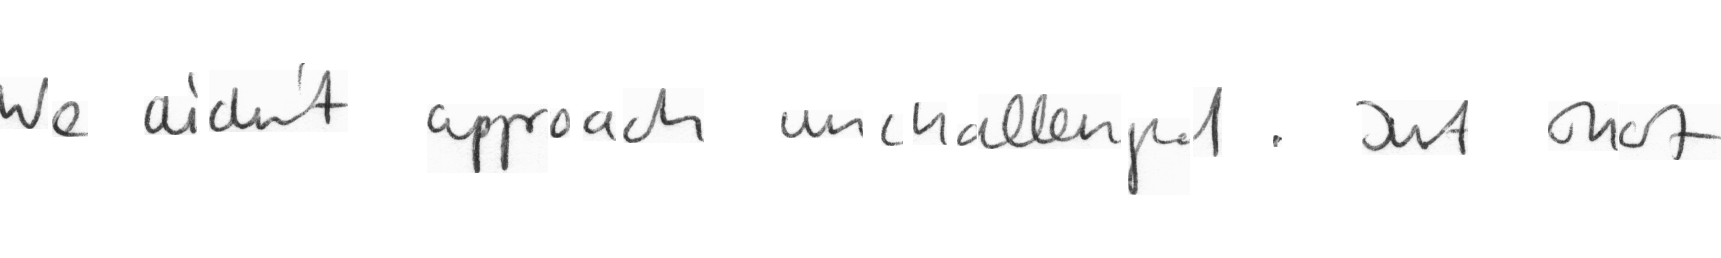 We didn't approach unchallenged. But that